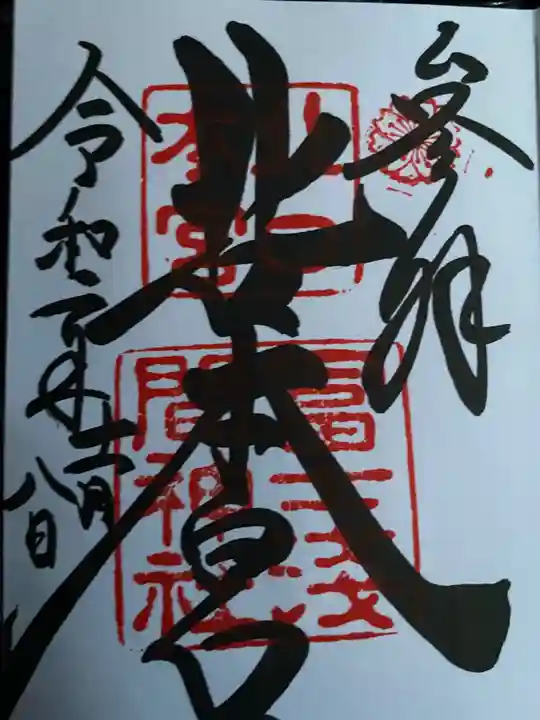 参拝
北口本宮
北口
本宮
冨士浅
間神社
令和二年十一月八日